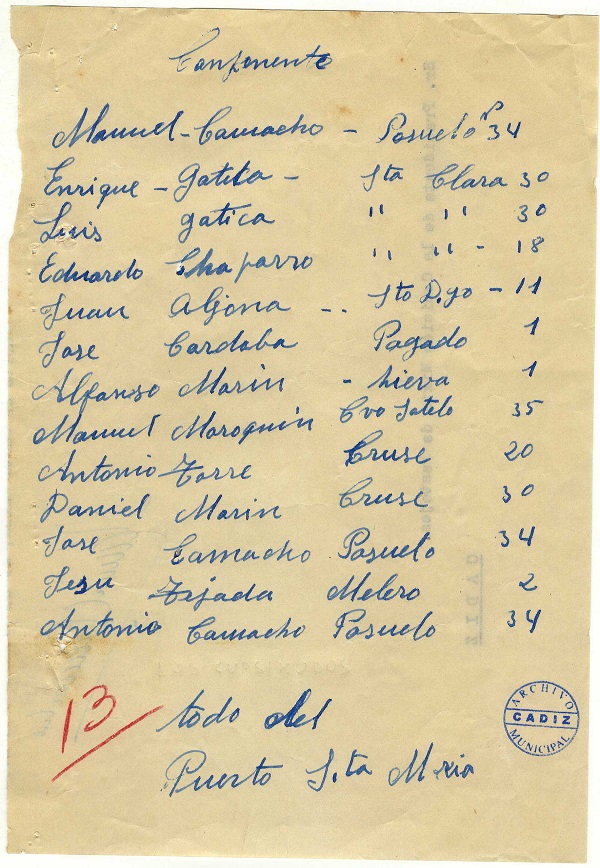 Componente
Manuel - Camacho - Posuelo nº 34
Enrique - Gatica - Sta Clara 30
Luis gatica " " 30
Eduardo Chaparro " " - 18
Juan Aljona - - Sto D.go - 11
Jose Cordoba Pagado 1
Alfonso Marin - Lieva 1
Manuel Maroquin Cvo Sotelo 35
Antonio Torre Cruse 20
Daniel Marin Cruse 30
Jose Camacho Posuelo 34
Jesu Tejada Melero 2
Antonio Camacho Posuelo 34
13
todo del
Puerto S.ta Mria
ARCHIVO
CADIZ
MUNICIPAL